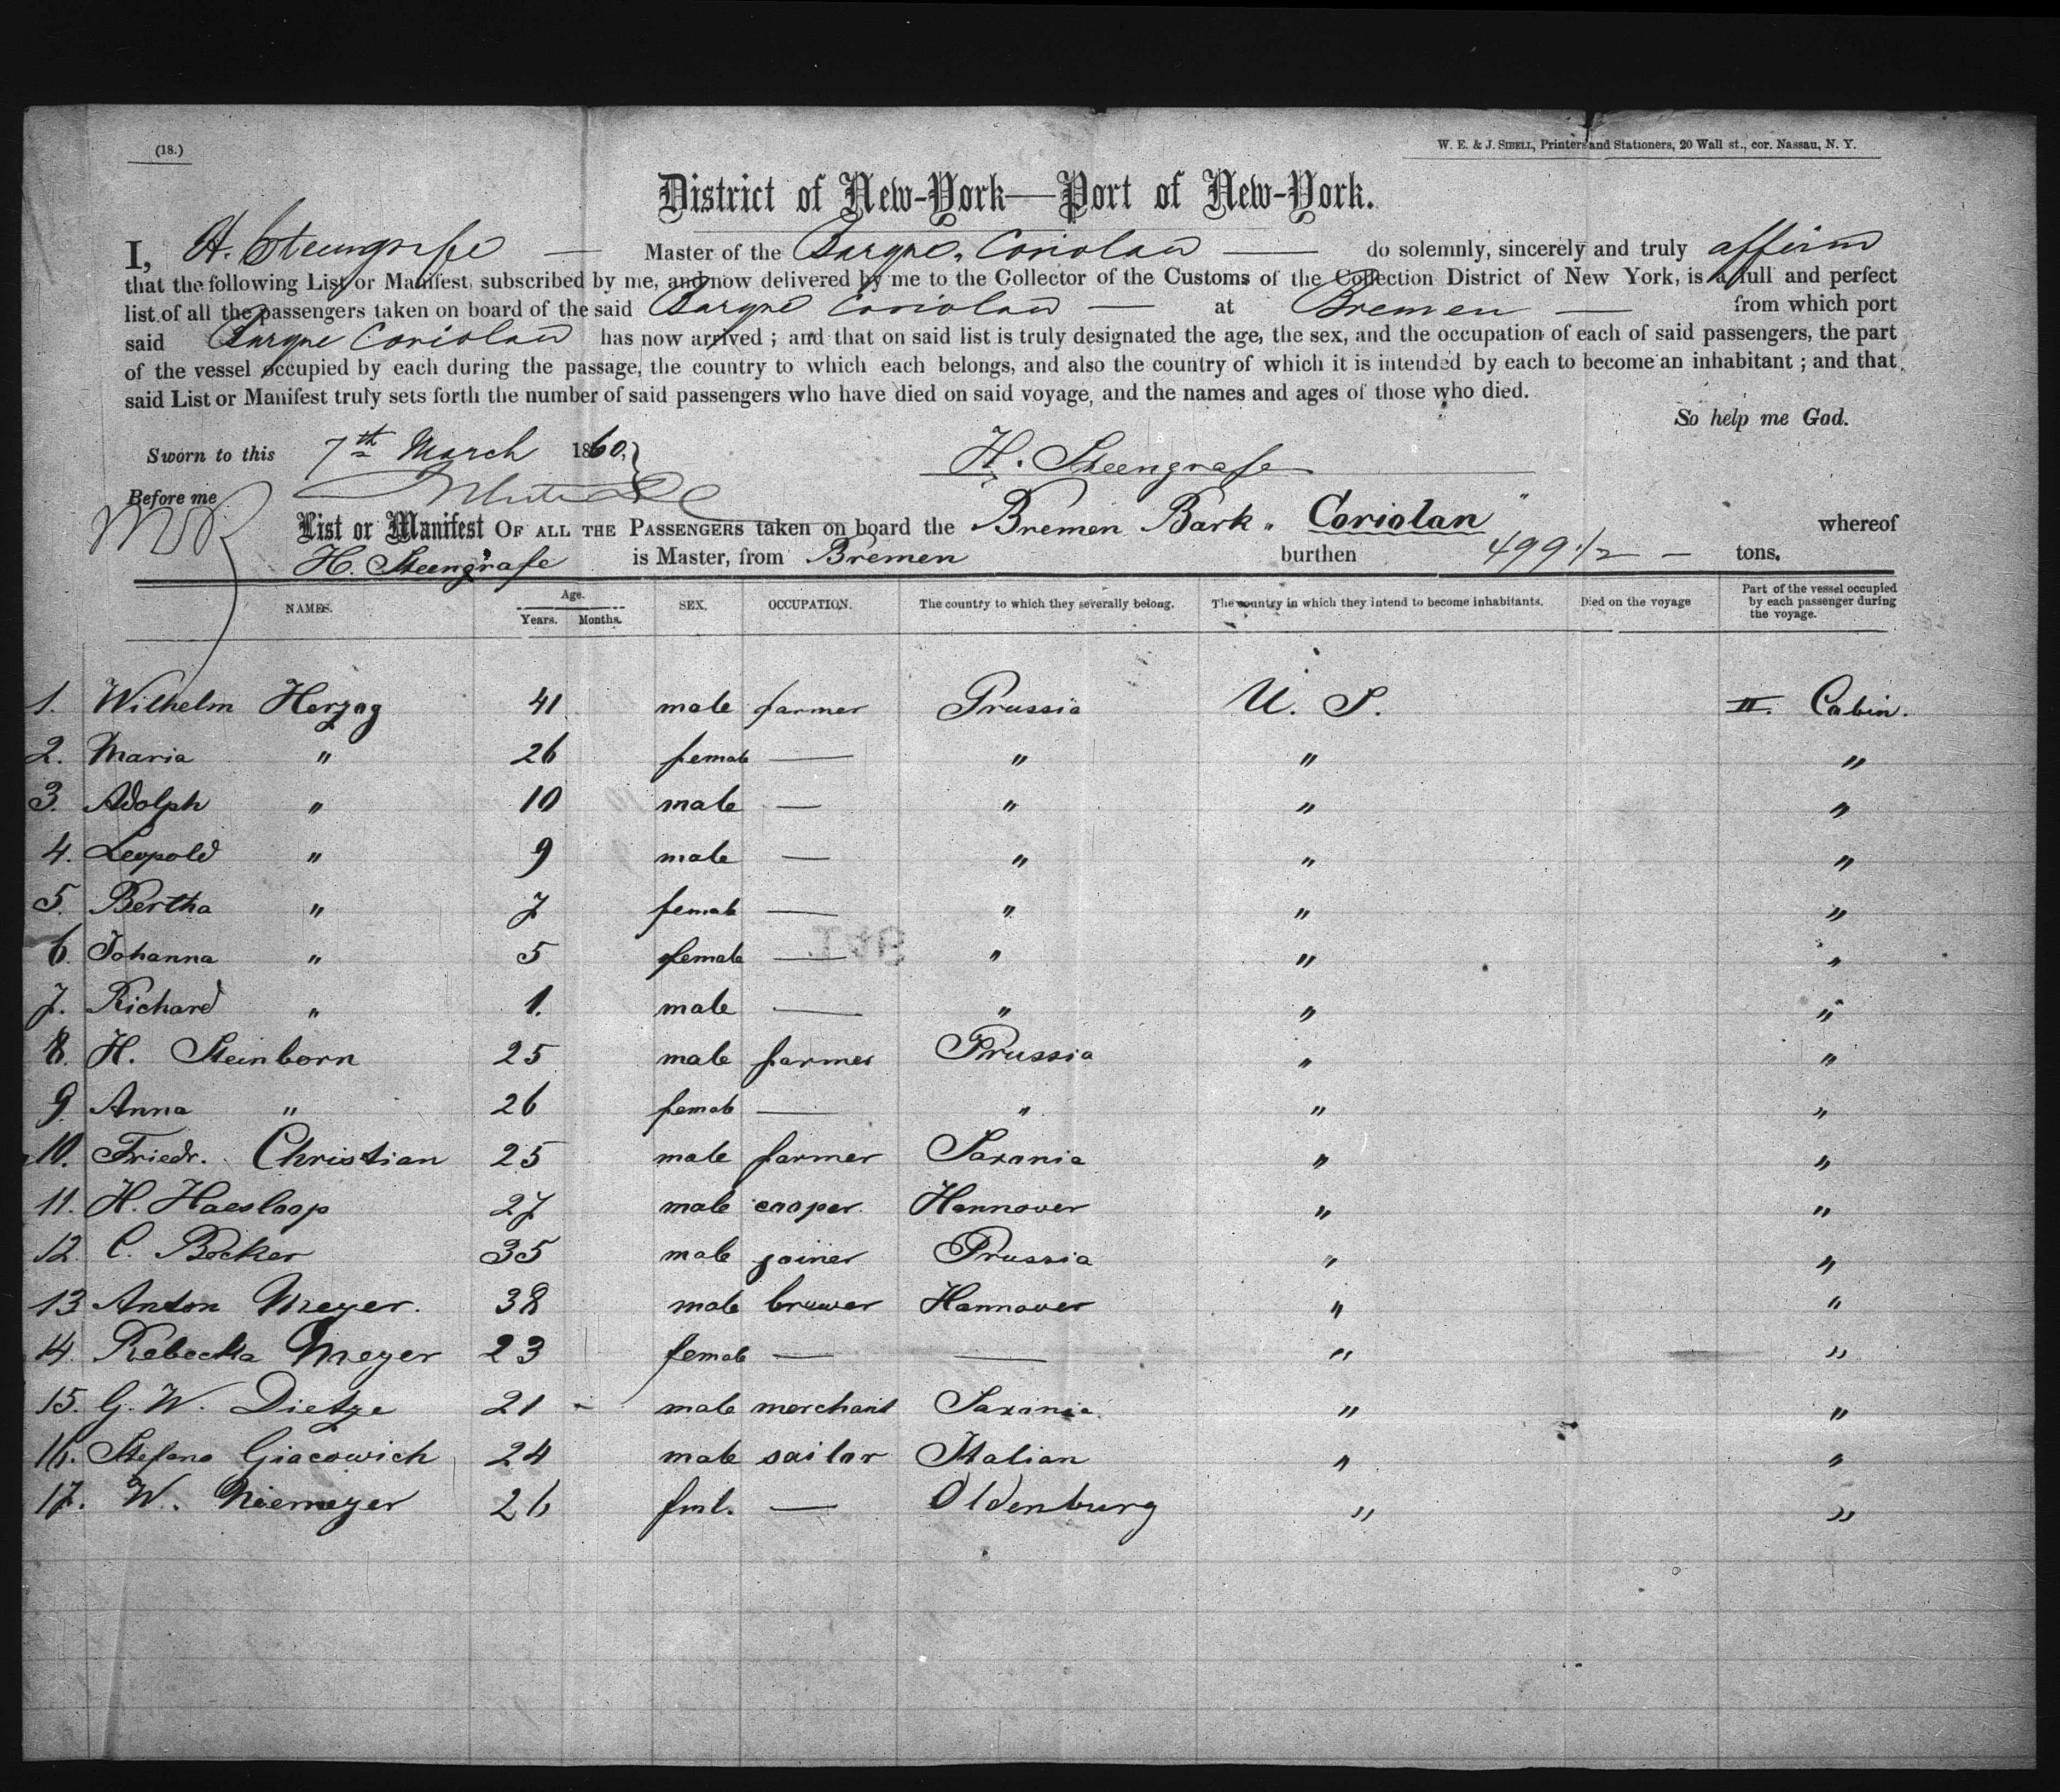 (18.)
W. E. & J. SIBELL, Printers and Stationers, 20 Wall st., cor. Nassau, N. Y.
District of New-York—Port of New-York.
I, H. Steengrafe — Master of the Barque „Coriolan — do solemnly, sincerely and truly affirm
that the following List or Manifest, subscribed by me, and now delivered by me to the Collector of the Customs of the Collection District of New York, is a full and perfect
list of all the passengers taken on board of the said Barque Coriolan — at Bremen — from which port
said Barque Coriolan has now arrived ; and that on said list is truly designated the age, the sex, and the occupation of each of said passengers, the part
of the vessel occupied by each during the passage, the country to which each belongs, and also the country of which it is intended by each to become an inhabitant ; and that
said List or Manifest truly sets forth the number of said passengers who have died on said voyage, and the names and ages of those who died.
So help me God.
Sworn to this 7th March 1860,
H. Steengrafe
Before me
List or Manifest OF ALL THE PASSENGERS taken on board the Bremen Bark „Coriolan" whereof
H. Steengrafe is Master, from Bremen burthen 499 1/2 — tons.
NAMES. Age. Years. Months. SEX. OCCUPATION. The country to which they severally belong. The country in which they intend to become inhabitants. Died on the voyage Part of the vessel occupied by each passenger during the voyage.
1. Wilhelm Herzog 41 male farmer Prussia U. S. II. Cabin.
2. Maria " 26 female — " " "
3. Adolph " 10 male — " " "
4. Leopold " 9 male — " " "
5. Bertha " 7 female — " " "
6. Johanna " 5 female — " " "
7. Richard " 1. male — " " "
8. H. Steinborn 25 male farmer Prussia " "
9 Anna " 26 female — " " "
10. Friedr. Christian 25 male farmer Saxonia " "
11. H. Haesloop 27 male cooper Hannover " "
12 C. Becker 35 male joiner Prussia " "
13 Anton Meyer. 38 male brewer Hannover " "
14. Rebecka Meyer 23 female — — " "
15. G. W. Dietze 21 - male merchant Saxonia " "
16. Stefano Giacowich 24 male sailor Italian " "
17. W. Niemeyer 26 fml. — Oldenburg " "